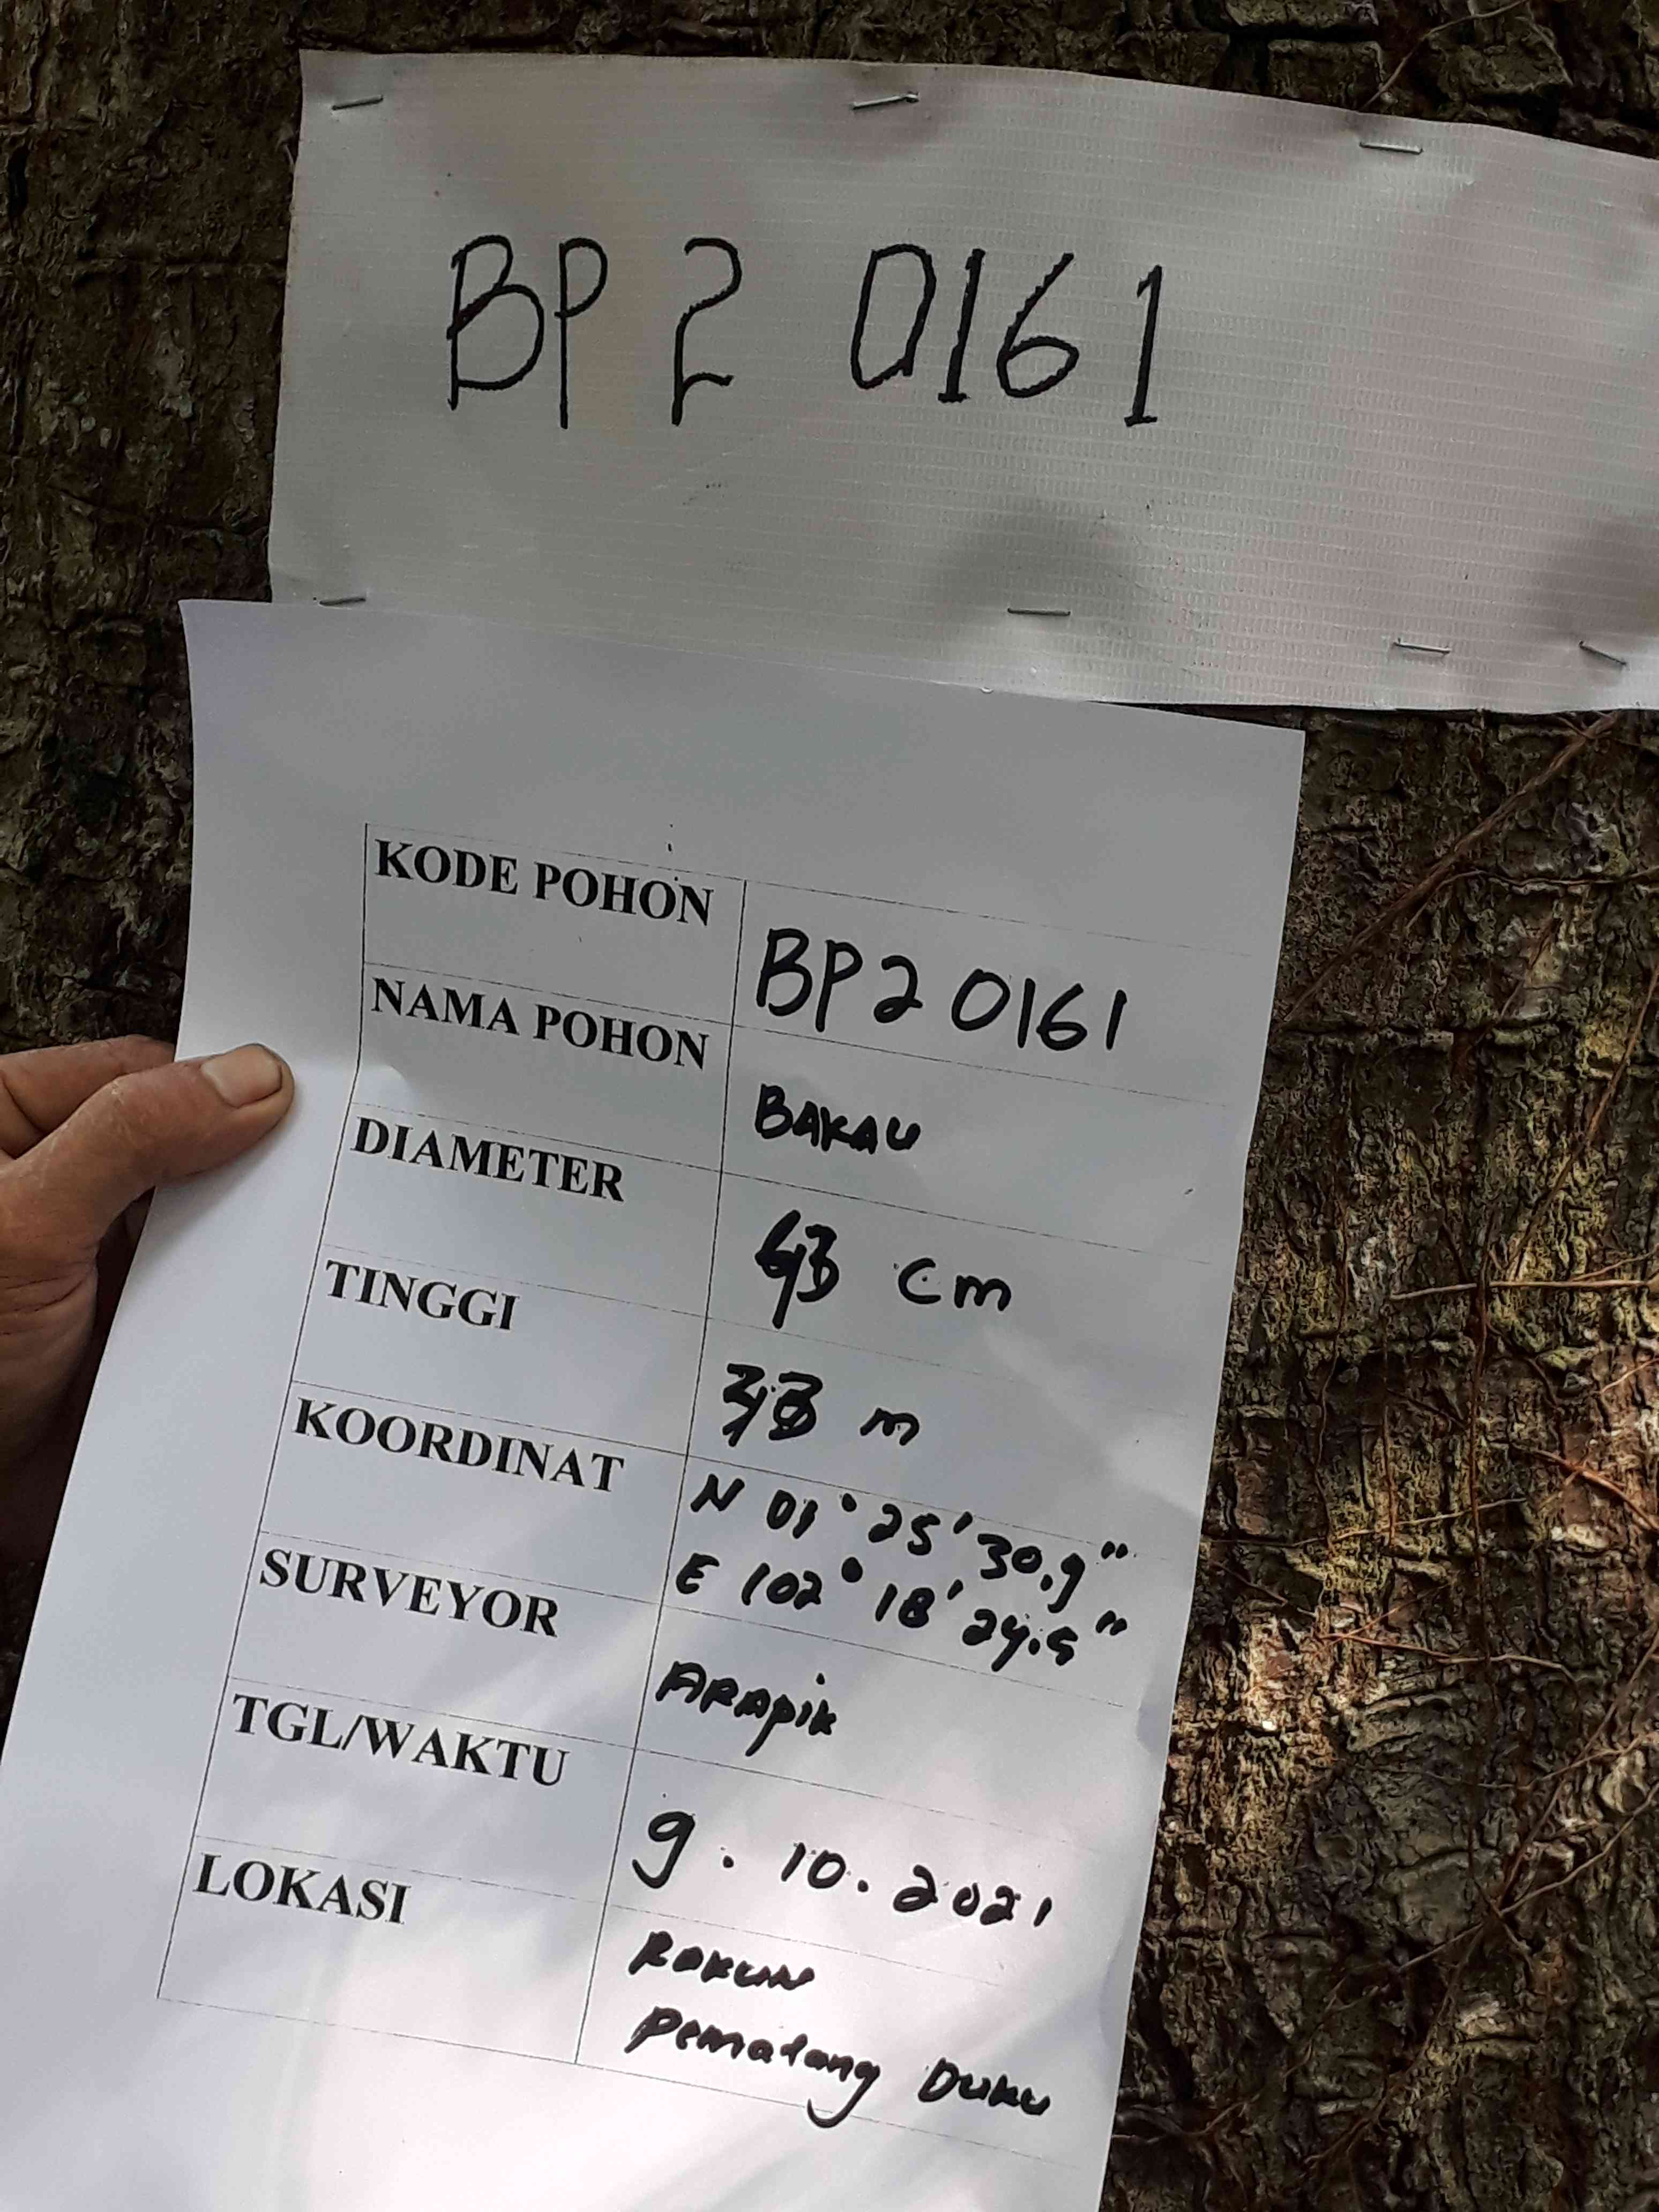 BP 2 0161
KODE POHON BP2 0161
NAMA POHON BAKAU
DIAMETER cm
TINGGI m
KOORDINAT N 01° 25' 30.9"
E 102° 18' 24.5"
SURVEYOR ARAPIK
TGL/WAKTU 9. 10. 2021
LOKASI
Pematang Duku